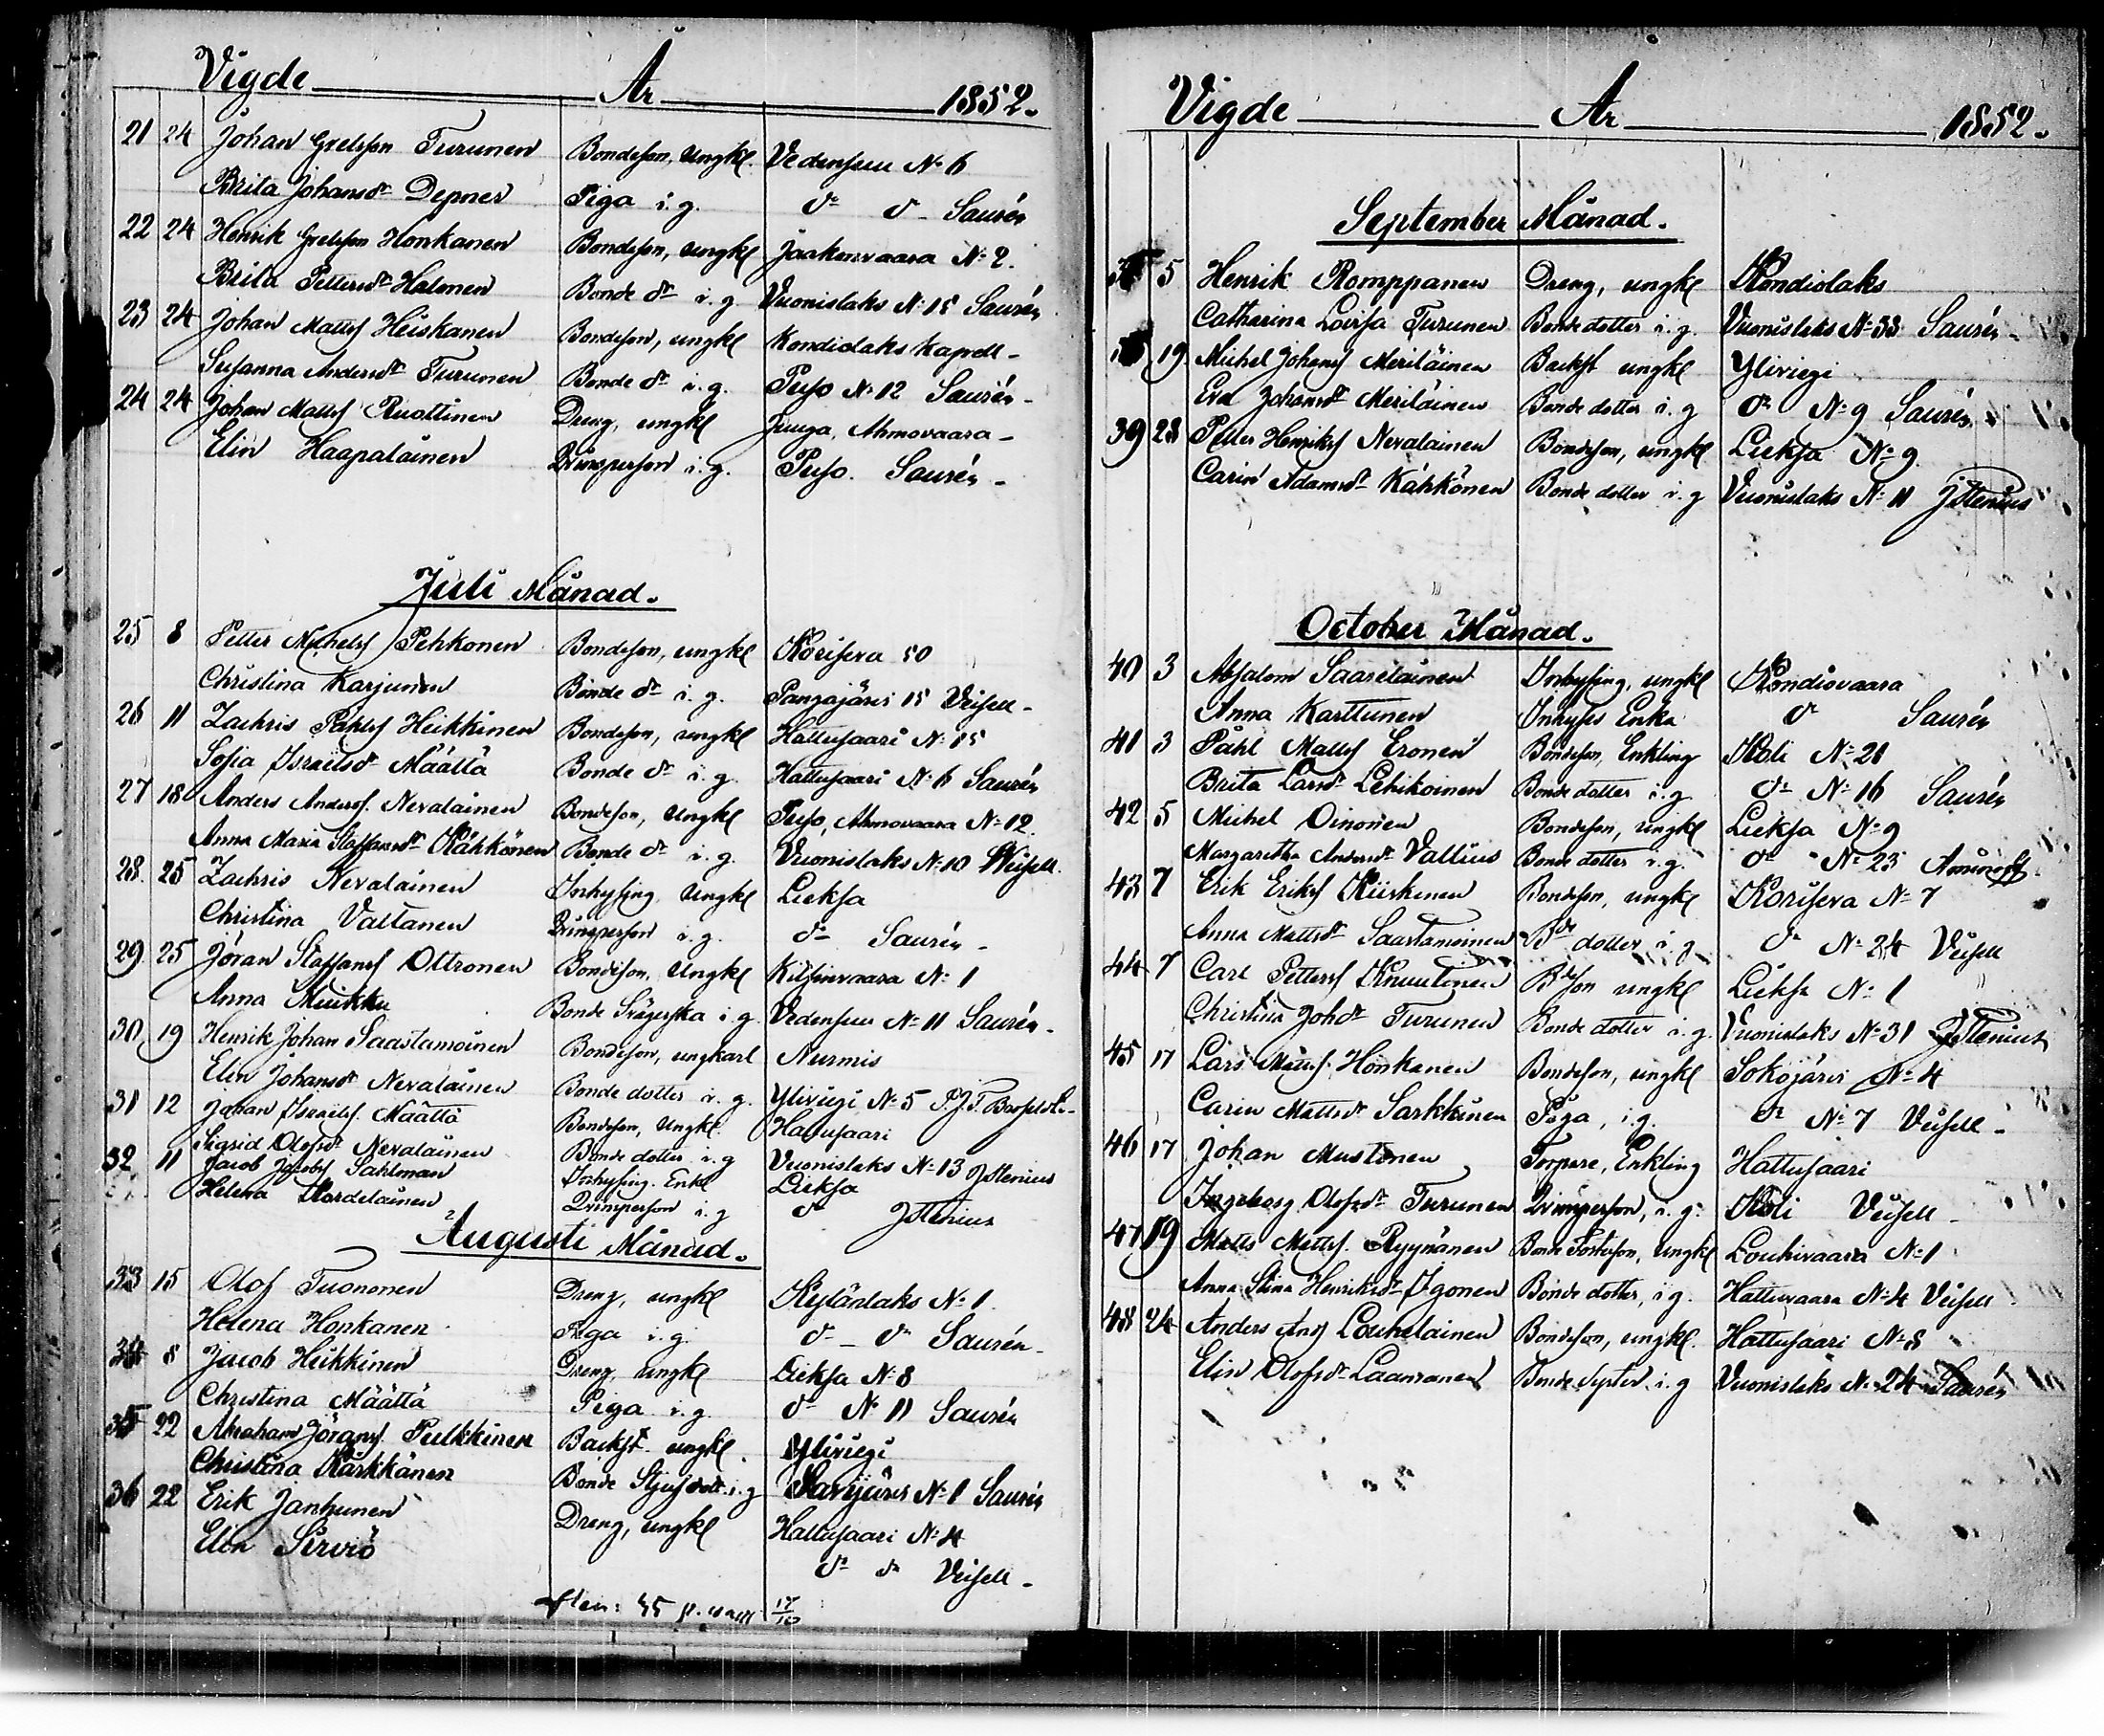 Vigde År 1852.
21 24 Johan Grelsson Turunen Bondeson, Ungkl. Vedensuu No 6
Brita Johansdr Depner Piga i.g. do do Saurén
22 24 Henrik Grelsson Honkanen Bondeson, ungkl Jaakonvaara No 2.
Brita Pettersdr Halonen Bonde dr i.g. Vuonislaks No 15 Saurén
23 24 Johan Mattss Heiskanen Bondeson, ungkl Kondiolaks Kapell -
Susanna Andersdr Turunen Bonde dr i.g. Puso No 12 Saurén -
24 24 Johan Mattss Ruottinen Dreng, ungkl Juuga, Ahmovaara -
Elin Haapalainen Qvinsperson i.g. Puso. Saurén -
Juli Månad.
25 8 Petter Michelss Pehkonen Bondeson, ungkl Korisева 50
Christina Karjunen Bonde dr i.g. Pangajärvi 15 Veisell -
26 11 Zachris Påhlss Heikkinen Bondeson, ungkl Hattusaari No 15
Sofia Israelsdr Määttä Bonde dr i.g. Hattusaari No 6 Saurén
27 18 Anders Anderss. Nevalainen Bondeson, Ungkl Puso, Ahmovaara No 12.
Anna Maria Staffansdr Kähkönen Bonde dr i.g. Vuonislaks No 10 Weisell.
28. 25 Zachris Nevalainen Inhysing Ungkl Lieksa
Christina Valtanen Qvinsperson i.g. do Saurén -
29. 25 Jöran Staffanss Ottronen Bondeson, Ungkl Kitsinvaara No 1
Anna Muikku Bonde Svägerska i.g. Vedensuu No 11 Saurén -
30 19 Henrik Johan Saastamoinen Bondeson, ungkarl Nurmis
Elin Johansdr Nevalainen Bonde dotter i.g. Yliviegi No 5
31 12 Johan Israelss. Määttä Bondeson, Ungkl. Hattusaari
Sigrid Olofsdr Nevalainen Bonde dotter i.g Vuonislaks No 13 JStenius
32 11 Jacob Jacobss Sahlman Inhysing. Enkl Lieksa
Helena Kardelainen Qvinsperson i.g do JStenius
Augusti Månad.
33 15 Olof Tuononen Dreng, ungkl Kylänlaks No 1
Helena Honkanen Piga i.g. do do Saurén -
34 8 Jacob Heikkinen Dreng, ungkl Lieksa No 8
Christina Määttä Piga i.g. do No 11 Saurén
35 22 Abraham Jöranss. Pulkkinen Backst. ungkl. Yliviegi
Christina Kärkkänen Bonde Stjufdott. i.g Savijärvi No 1 Saurén
36 22 Erik Janhunen Dreng, ungkl Hattusaari No 4
Elin Sirviö do do Veisell -
17/10
Vigde År 1852.
September Månad.
5 Henrik Romppanen Dreng, ungkl Kondiolaks
Catharina Lovisa Turunen Bonde dotter i.g. Vuonislaks No 33 Saurén -
19 Michel Johanss Meriläinen Backst ungkl Yliviegi
Eva Johansdr Meriläinen Bonde dotter i.g do No 9 Saurén
39 28 Petter Henrikss Nevalainen Bondeson, ungkl Lieksa No 9
Carin Adamsdr Kähkönen Bonde dotter i.g Vuonislaks No 11 JStenius
October Månad.
40 3 Absalom Saarelainen Inhysing, ungkl Kondiovaara
Anna Karttunen Inhyses Enka do Saurén
41 3 Påhl Mattss Eronen Bondeson, Enkling Koli No 21
Brita Larsdr Lehikoinen Bonde dotter i.g. do No 16 Saurén
42 5 Michel Oinonen Bondeson, ungkl Lieksa No 9
Margaretha Andersdr Vallius Bonde dotter i.g. do No 23
43 7 Erik Erikss Kiiskinen Bondeson, ungkl Koriseva No 7
Anna Mattsdr Saastamoinen Bde dotter i.g do No 24 Veisell
44 7 Carl Petterss Knuutinen Bdeson ungkl Lieksa No 1
Christina Johdr Turunen Bonde dotter i.g. Vuonislaks No 31 JStenius
45 17 Lars Mattss. Honkanen Bondeson, ungkl Sokojärvi No 4
Carin Mattsdr Sarkkinen Piga, i.g. do No 7 Veisell -
46 17 Johan Mustonen Torpare, Enkling Hattusaari
Ingeborg Olofsdr Turunen Qvinsperson, i.g. Koli Veisell -
47 19 Matts Mattss. Ryynänen Bonde Fosterson, Ungkl Louhivaara No 1
Anna Stina Henriksdr Igonen Bonde dotter, i.g. Hattuvaara No 4 Veisell
48 24 Anders Andss Louhelainen Bondeson, ungkl. Hattusaari No 8
Elin Olofsdr Laamanen Bonde Syster i.g Vuonislaks No 24 Saurén